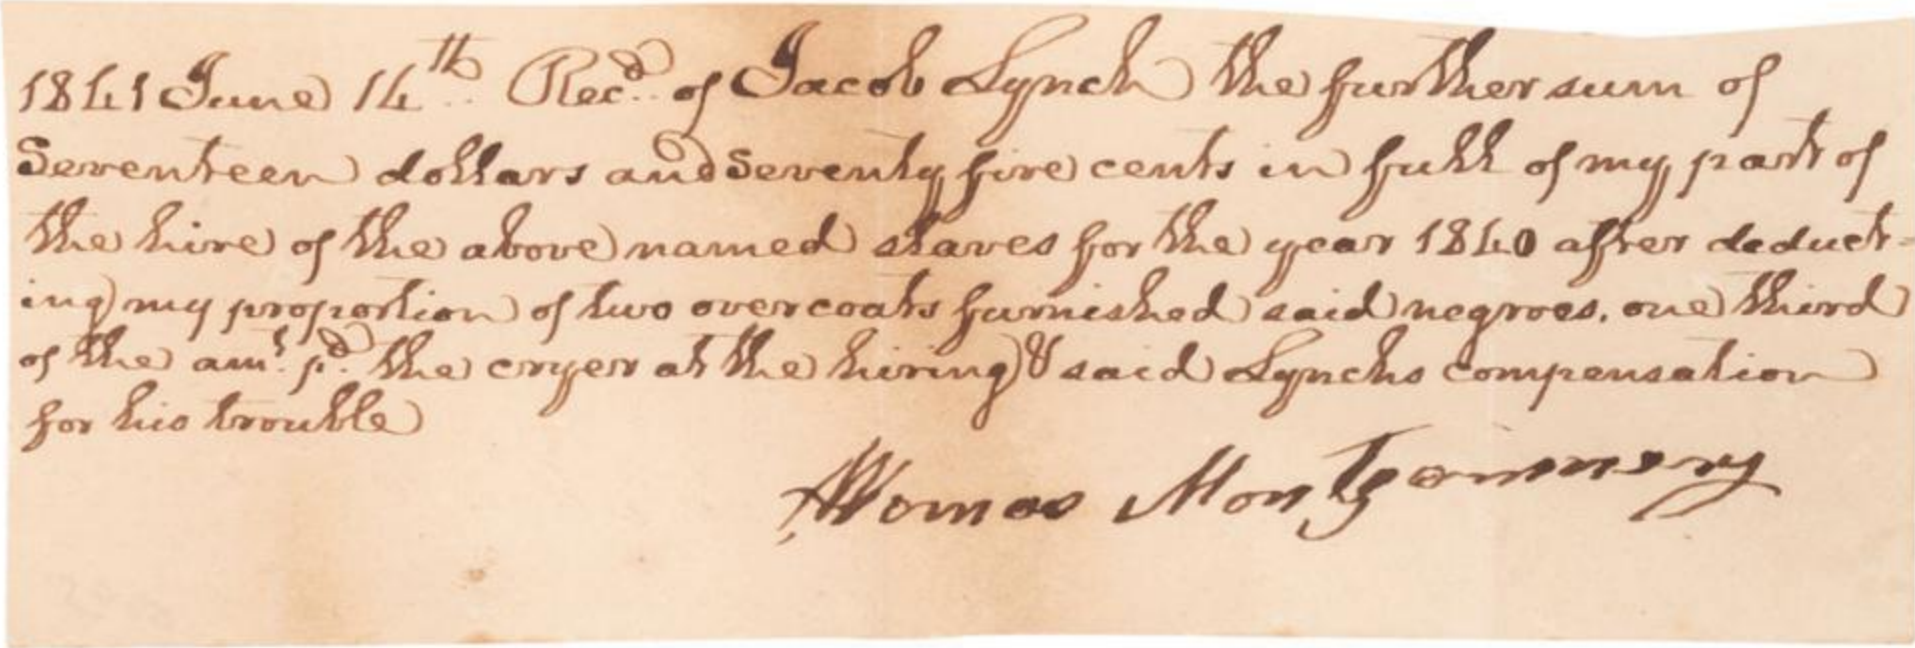 1841 June 14th Recd. of Jacob Lynch the further sum of
Seventeen dollars and Seventy five cents in full of my part of
the hire of the above named slaves for the year 1840 after deduct-
ing my proportion of two overcoats furnished said negroes, one third
of the amt. pd. the cryer at the hiring & said Lynchs compensation
for his trouble
Thomas Montgommery